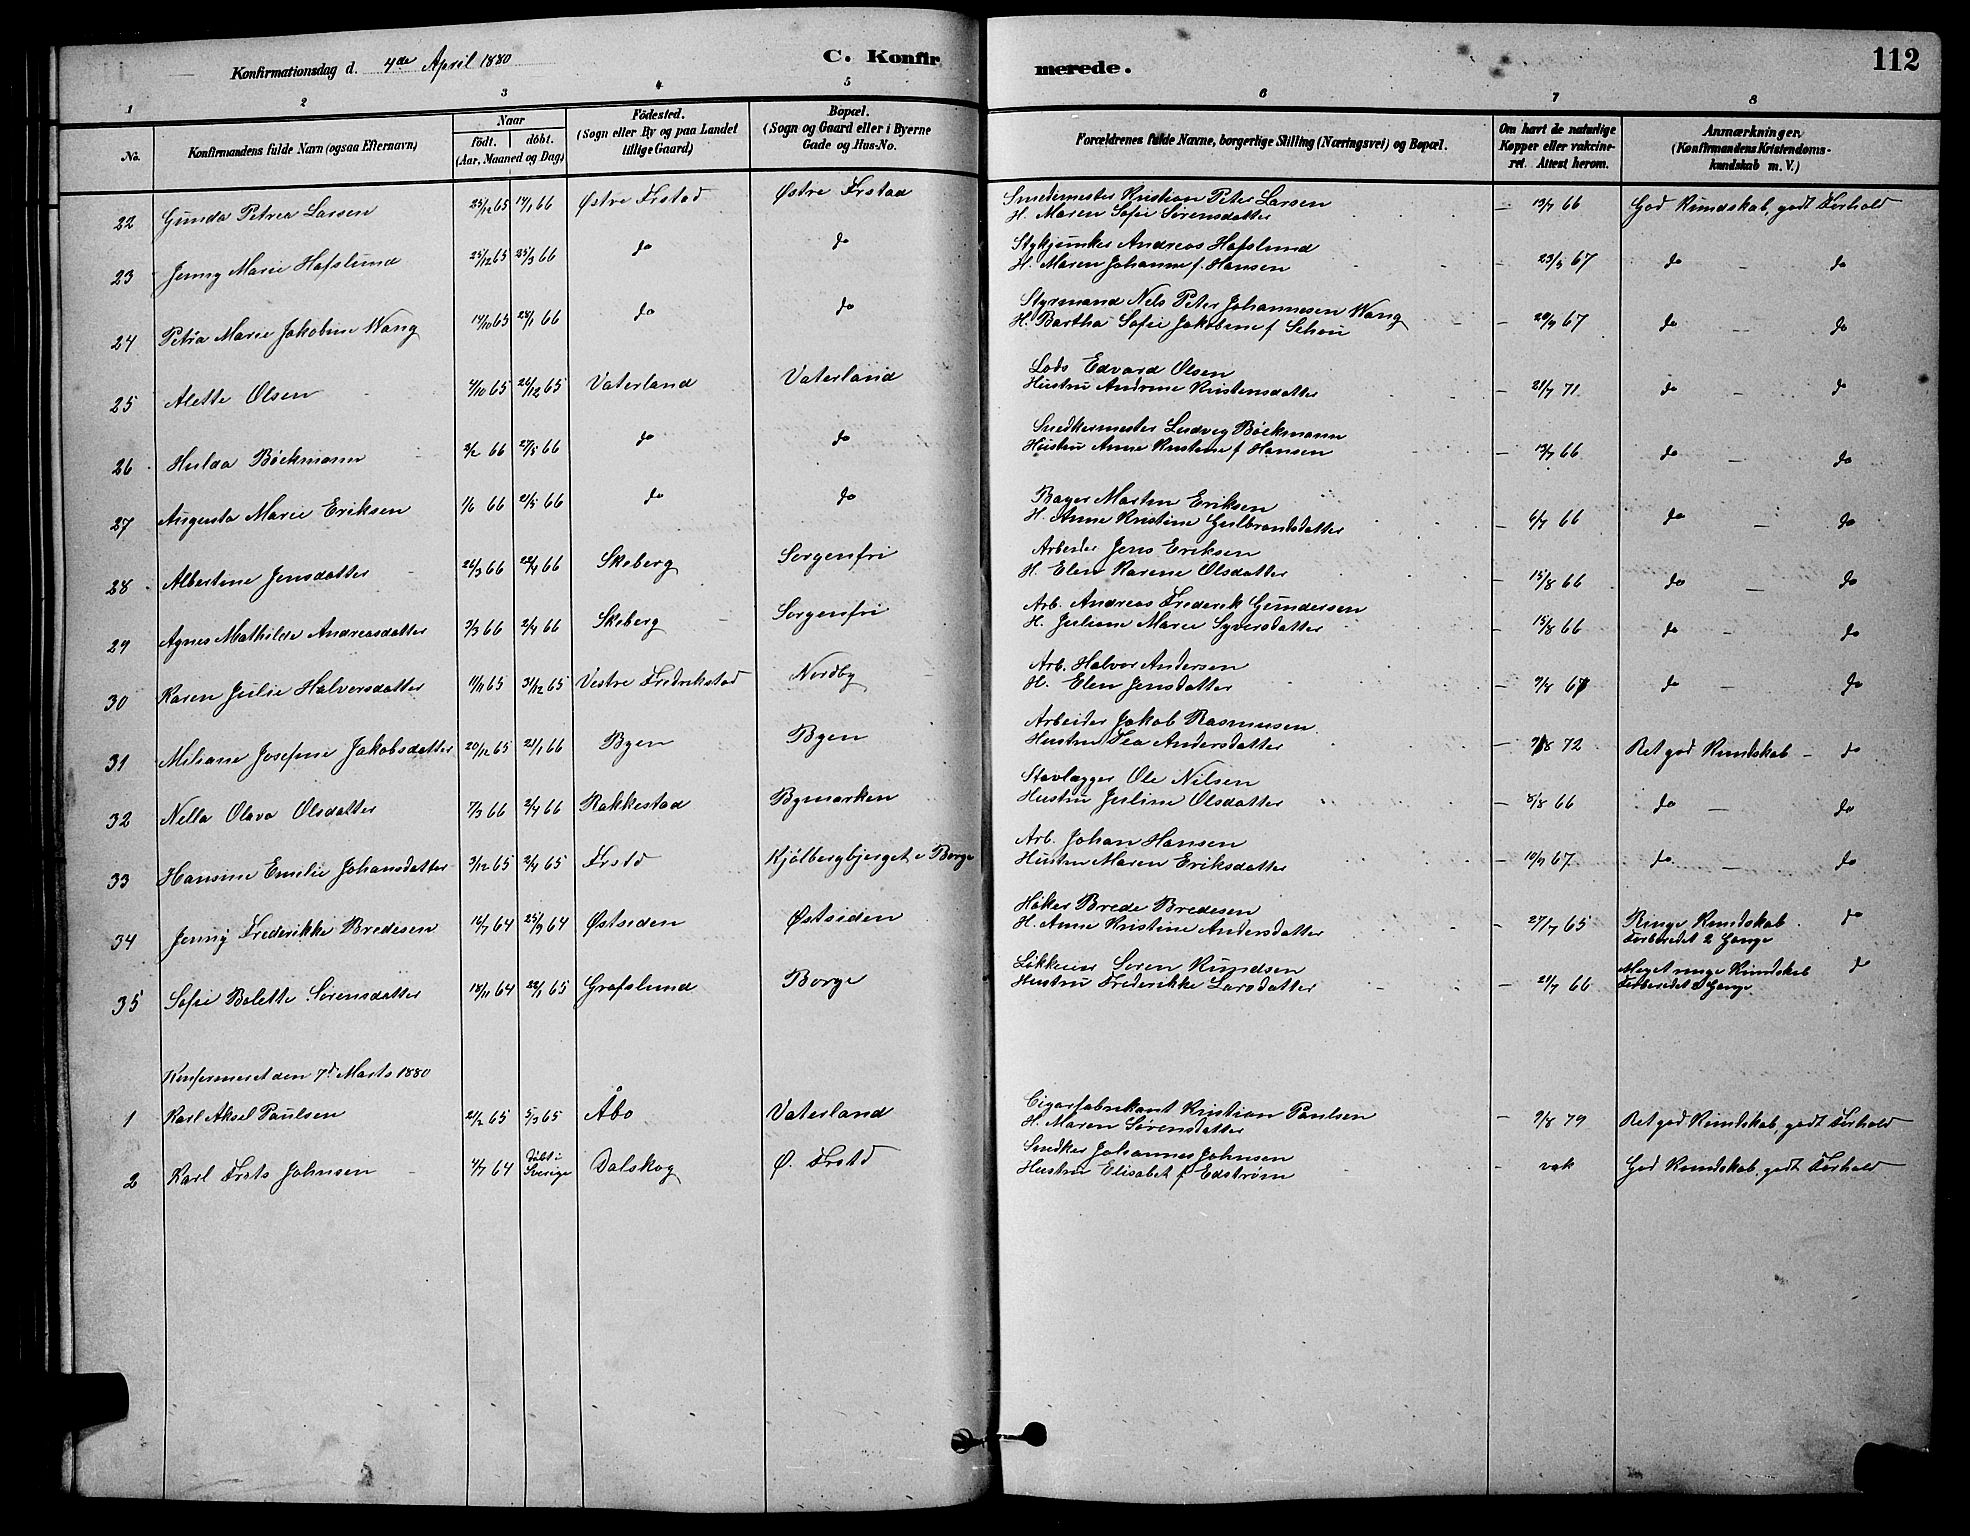 Konfirmationsdag d. 4de April 1880
C. Konfirmerede.
112
1 2 3 4 5 6 7 8
No.
Konfirmandens fulde Navn (ogsaa Efternavn)
Naar
födt. döbt.
(Aar, Maaned og Dag)
Födested.
(Sogn eller By og paa Landet
tillige Gaard)
Bopæl.
(Sogn og Gaard eller i Byerne
Gade og Hus-No.
Forældrenes fulde Navne, borgerlige Stilling (Næringsvei) og Bopæl.
Om havt de naturlige
Kopper eller vakcine-
ret. Attest herom.
Anmærkninger
(Konfirmandens Kristendoms-
kundskab m. V.)
22 Gunda Petrea Larsen 25/12 65 14/1 66 Østre Frstad Østre Frstad Smedemester Kristian Peter Larsen – 13/7 66 God Kundskab, godt Forhold
H. Maren Sofie Sørensdatter
23 Jenny Marie Hafslund 25/12 65 25/3 66 do do Stykjunker Andreas Hafslund – 23/5 67 do – do
H. Maren Johanne f. Hansen
24 Petra Marie Jakobine Wang 14/10 65 28/1 66 do do Styrmand Nels Peter Johannesen Wang – 20/9 67 do – do
H. Bartha Sofie Jakobine f Schou
25 Alette Olsen 4/10 65 26/12 65 Vaterland Vaterland Lods Edvard Olsen – 21/7 71 do – do
Hustru Andrine Kristensdatter
26 Hulda Böckmann 3/2 66 27/5 66 do do Snedkermester Ludvig Böckmann – 13/7 66 do – do
Hustru Anne Kristine f Hansen
27 Augusta Marie Eriksen 1/6 66 21/5 66 do do Bager Martin Eriksen – 6/7 66 do – do
H. Anne Kristine Gulbrandsdatter
28 Albertine Jensdatter 26/3 66 22/4 66 Skeberg Sorgenfri Arbeider Jens Eriksen – 15/8 66 do – do
H. Elen Karine Olsdatter
29 Agnes Mathilde Andreasdatter 3/3 66 2/4 66 Skeberg Sorgenfri Arb. Andreas Frederik Gundersen – 15/8 66 do – do
H. Juliane Marie Syversdatter
30 Karen Julie Halversdatter 11/11 65 31/12 65 Vestre Fredrikstad Nordby Arb. Halvor Andersen – 9/8 67 do – do
H. Elen Jensdatter
31 Miliane Josefine Jakobsdatter 20/12 65 21/1 66 Byen Byen Arbeider Jakob Rasmusen – 9/8 72 Ret god Kundskab – do
Hustru Tea Andersdatter
32 Nella Olava Olsdatter 7/3 66 2/4 66 Rakkestad Bymarken Stavlægger Ole Nilsen – 8/8 66 do – do
Hustru Juline Olsdatter
33 Hansine Emilie Johansdatter 3/12 65 2/4 65 Frstd Kjølbergbjerget i Borge Arb. Johan Hansen – 10/7 67 do – do
Hustru Maren Eriksdatter
34 Jenny Frederikke Bredesen 16/7 64 25/9 64 Østsiden Østsiden Høker Brede Bredesen – 27/7 65 Ringe Kundskab do
H. Anne Kristine Andersdatter Forberedet 2 Gange
35 Sofie Bolette Sørensdatter 18/11 64 22/1 65 Grafslund Borge Løkkeier Soren Kundsen – 21/7 66 Meget ringe Kundskab do
Hustru Frederikke Larsdatter Forberedet 2 Gange
Konfirmeret den 7d Marts 1880
1 Karl Aksel Paulsen 21/2 65 5/3 65 Åbo Vaterland Cigarfabrikant Kristian Paulsen – 9/8 79 Ret god Kundskab, godt Forhold
H. Maren Sørensdatter
2 Karl Frets Johnsen 4/7 64 Døbt i Sverige Dalskog Ø. Frstd Snedker Johannes Johnsen – vak God Kundskab, godt Forhold
Hustru Elisabet f Edström